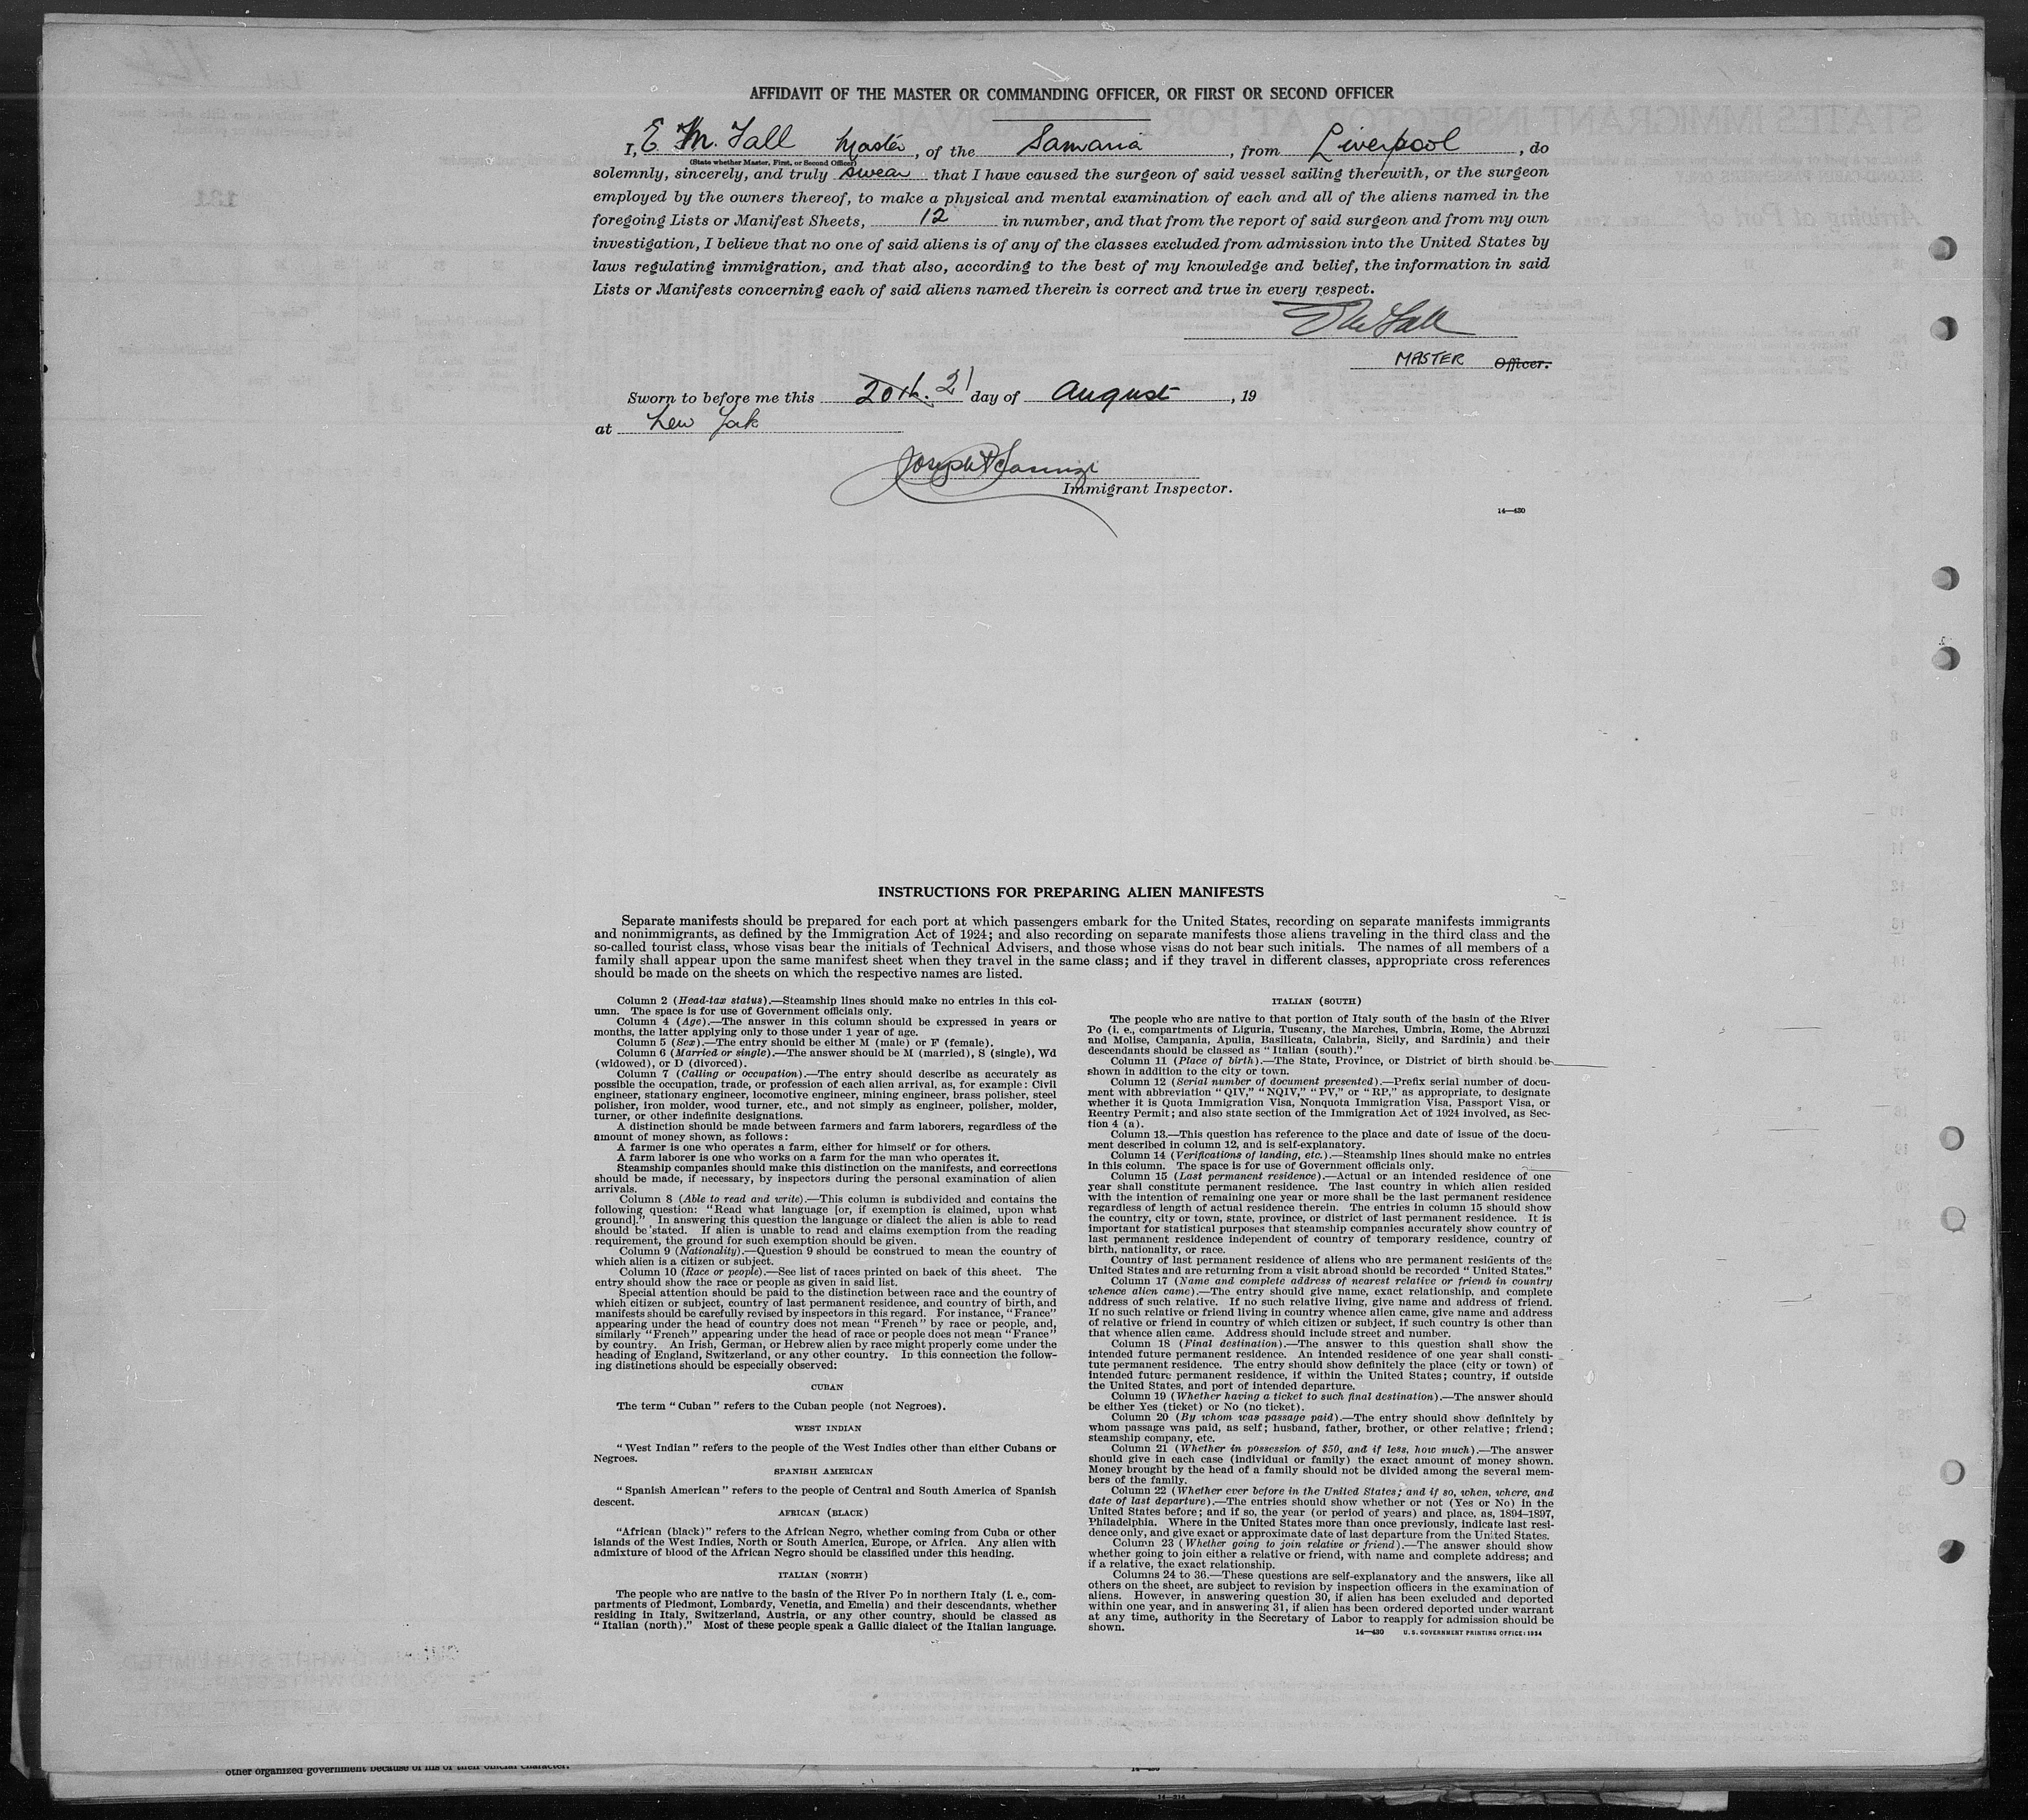 AFFIDAVIT OF THE MASTER OR COMMANDING OFFICER, OR FIRST OR SECOND OFFICER
I, E. M. Fall Master, of the Samaria, from Liverpool, do
(State whether Master, First, or Second Officer)
solemnly, sincerely, and truly swear that I have caused the surgeon of said vessel sailing therewith, or the surgeon
employed by the owners thereof, to make a physical and mental examination of each and all of the aliens named in the
foregoing Lists or Manifest Sheets, 12 in number, and that from the report of said surgeon and from my own
investigation, I believe that no one of said aliens is of any of the classes excluded from admission into the United States by
laws regulating immigration, and that also, according to the best of my knowledge and belief, the information in said
Lists or Manifests concerning each of said aliens named therein is correct and true in every respect.
E M Fall
MASTER Officer.
Sworn to before me this 20th. 21 day of August, 19
at New York
Joseph
Immigrant Inspector.
14—430
INSTRUCTIONS FOR PREPARING ALIEN MANIFESTS
Separate manifests should be prepared for each port at which passengers embark for the United States, recording on separate manifests immigrants
and nonimmigrants, as defined by the Immigration Act of 1924; and also recording on separate manifests those aliens traveling in the third class and the
so-called tourist class, whose visas bear the initials of Technical Advisers, and those whose visas do not bear such initials. The names of all members of a
family shall appear upon the same manifest sheet when they travel in the same class; and if they travel in different classes, appropriate cross references
should be made on the sheets on which the respective names are listed.
Column 2 (Head-tax status).—Steamship lines should make no entries in this col-
umn. The space is for use of Government officials only.
Column 4 (Age).—The answer in this column should be expressed in years or
months, the latter applying only to those under 1 year of age.
Column 5 (Sex).—The entry should be either M (male) or F (female).
Column 6 (Married or single).—The answer should be M (married), S (single), Wd
(widowed), or D (divorced).
Column 7 (Calling or occupation).—The entry should describe as accurately as
possible the occupation, trade, or profession of each alien arrival, as, for example: Civil
engineer, stationary engineer, locomotive engineer, mining engineer, brass polisher, steel
polisher, iron molder, wood turner, etc., and not simply as engineer, polisher, molder,
turner, or other indefinite designations.
A distinction should be made between farmers and farm laborers, regardless of the
amount of money shown, as follows:
A farmer is one who operates a farm, either for himself or for others.
A farm laborer is one who works on a farm for the man who operates it.
Steamship companies should make this distinction on the manifests, and corrections
should be made, if necessary, by inspectors during the personal examination of alien
arrivals.
Column 8 (Able to read and write).—This column is subdivided and contains the
following question: "Read what language [or, if exemption is claimed, upon what
ground]." In answering this question the language or dialect the alien is able to read
should be stated. If alien is unable to read and claims exemption from the reading
requirement, the ground for such exemption should be given.
Column 9 (Nationality).—Question 9 should be construed to mean the country of
which alien is a citizen or subject.
Column 10 (Race or people).—See list of races printed on back of this sheet. The
entry should show the race or people as given in said list.
Special attention should be paid to the distinction between race and the country of
which citizen or subject, country of last permanent residence, and country of birth, and
manifests should be carefully revised by inspectors in this regard. For instance, "France"
appearing under the head of country does not mean "French" by race or people, and,
similarly "French" appearing under the head of race or people does not mean "France"
by country. An Irish, German, or Hebrew alien by race might properly come under the
heading of England, Switzerland, or any other country. In this connection the follow-
ing distinctions should be especially observed:
CUBAN
The term "Cuban" refers to the Cuban people (not Negroes).
WEST INDIAN
"West Indian" refers to the people of the West Indies other than either Cubans or
Negroes.
SPANISH AMERICAN
"Spanish American" refers to the people of Central and South America of Spanish
descent.
AFRICAN (BLACK)
"African (black)" refers to the African Negro, whether coming from Cuba or other
islands of the West Indies, North or South America, Europe, or Africa. Any alien with
admixture of blood of the African Negro should be classified under this heading.
ITALIAN (NORTH)
The people who are native to the basin of the River Po in northern Italy (i. e., com-
partments of Piedmont, Lombardy, Venetia, and Emelia) and their descendants, whether
residing in Italy, Switzerland, Austria, or any other country, should be classed as
"Italian (north)." Most of these people speak a Gallic dialect of the Italian language.
ITALIAN (SOUTH)
The people who are native to that portion of Italy south of the basin of the River
Po (i. e., compartments of Liguria, Tuscany, the Marches, Umbria, Rome, the Abruzzi
and Molise, Campania, Apulia, Basilicata, Calabria, Sicily, and Sardinia) and their
descendants should be classed as "Italian (south)."
Column 11 (Place of birth).—The State, Province, or District of birth should be
shown in addition to the city or town.
Column 12 (Serial number of document presented).—Prefix serial number of docu-
ment with abbreviation "QIV," "NQIV," "PV," or "RP," as appropriate, to designate
whether it is Quota Immigration Visa, Nonquota Immigration Visa, Passport Visa, or
Reentry Permit; and also state section of the Immigration Act of 1924 involved, as Sec-
tion 4 (a).
Column 13.—This question has reference to the place and date of issue of the docu-
ment described in column 12, and is self-explanatory.
Column 14 (Verifications of landing, etc.).—Steamship lines should make no entries
in this column. The space is for use of Government officials only.
Column 15 (Last permanent residence).—Actual or an intended residence of one
year shall constitute permanent residence. The last country in which alien resided
with the intention of remaining one year or more shall be the last permanent residence
regardless of length of actual residence therein. The entries in column 15 should show
the country, city or town, state, province, or district of last permanent residence. It is
important for statistical purposes that steamship companies accurately show country of
last permanent residence independent of country of temporary residence, country of
birth, nationality, or race.
Country of last permanent residence of aliens who are permanent residents of the
United States and are returning from a visit abroad should be recorded "United States."
Column 17 (Name and complete address of nearest relative or friend in country
whence alien came).—The entry should give name, exact relationship, and complete
address of such relative. If no such relative living, give name and address of friend.
If no such relative or friend living in country whence alien came, give name and address
of relative or friend in country of which citizen or subject, if such country is other than
that whence alien came. Address should include street and number.
Column 18 (Final destination).—The answer to this question shall show the
intended future permanent residence. An intended residence of one year shall consti-
tute permanent residence. The entry should show definitely the place (city or town) of
intended future permanent residence, if within the United States; country, if outside
the United States, and port of intended departure.
Column 19 (Whether having a ticket to such final destination).—The answer should
be either Yes (ticket) or No (no ticket).
Column 20 (By whom was passage paid).—The entry should show definitely by
whom passage was paid, as self; husband, father, brother, or other relative; friend;
steamship company, etc.
Column 21 (Whether in possession of $50, and if less, how much).—The answer
should give in each case (individual or family) the exact amount of money shown.
Money brought by the head of a family should not be divided among the several mem-
bers of the family.
Column 22 (Whether ever before in the United States; and if so, when, where, and
date of last departure).—The entries should show whether or not (Yes or No) in the
United States before; and if so, the year (or period of years) and place, as, 1894–1897,
Philadelphia. Where in the United States more than once previously, indicate last resi-
dence only, and give exact or approximate date of last departure from the United States.
Column 23 (Whether going to join relative or friend).—The answer should show
whether going to join either a relative or friend, with name and complete address; and
if a relative, the exact relationship.
Columns 24 to 36.—These questions are self-explanatory and the answers, like all
others on the sheet, are subject to revision by inspection officers in the examination of
aliens. However, in answering question 30, if alien has been excluded and deported
within one year, and in answering 31, if alien has been ordered deported under warrant
at any time, authority in the Secretary of Labor to reapply for admission should be
shown.
14—430 U. S. GOVERNMENT PRINTING OFFICE: 1934
other organized government because of his or their official character.